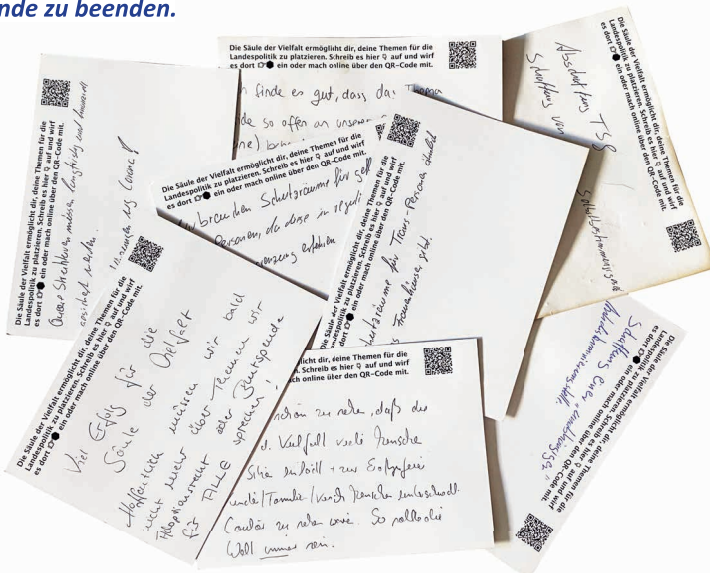 nde zu beenden.
Die Säule der Vielfalt ermöglicht dir, deine Themen für die
Landespolitik zu platzieren. Schreib es hier auf und wirf
es dort ein oder mach online über den QR-Code mit.
finde es gut, dass das Thema
so offen an unserer
Die Säule der Vielfalt ermöglicht dir, deine Themen für die
Landespolitik zu platzieren. Schreib es hier auf und wirf
es dort ein oder mach online über den QR-Code mit.
Abschaffung TSG
Schaffung von
Selbstbestimmungs
Die Säule der Vielfalt ermöglicht dir, deine Themen für die
Landespolitik zu platzieren. Schreib es hier auf und wirf
es dort ein oder mach online über den QR-Code mit.
Queere Strukturen müssen langfristig und finanziell
gesichert werden.
wg Corona?
Die Säule der Vielfalt ermöglicht dir, deine Themen für die
Landespolitik zu platzieren. Schreib es hier auf und wirf
es dort ein oder mach online über den QR-Code mit.
brauchen Schutzräume für
Personen, da diese in
erfahren
der Vielfalt ermöglicht dir, deine Themen für die
Landespolitik zu platzieren. Schreib es hier auf und wirf
es dort ein oder mach online über den QR-Code mit.
für Trans-Personen ähnlich
Frauenhäuser gibt.
Die Säule der Vielfalt ermöglicht dir, deine Themen für die
Landespolitik zu platzieren. Schreib es hier auf und wirf
es dort ein oder mach online über den QR-Code mit.
Viel Erfolg für die
Säule der Vielfalt
Hoffentlich müssen wir bald
nicht mehr über Themen wie
Adoptionsrecht oder Blutspende
für ALLE sprechen!
licht dir, deine Themen für die
n. Schreib es hier auf und wirf
ch online über den QR-Code mit.
schön zu sehen, daß die
d. Vielfalt viele Menschen
zu sehen
So sollte die
Welt immer sein.
Die Säule der Vielfalt ermöglicht dir, deine Themen für die
Landespolitik zu platzieren. Schreib es hier auf und wirf
es dort ein oder mach online über den QR-Code mit.
Schaffung einer